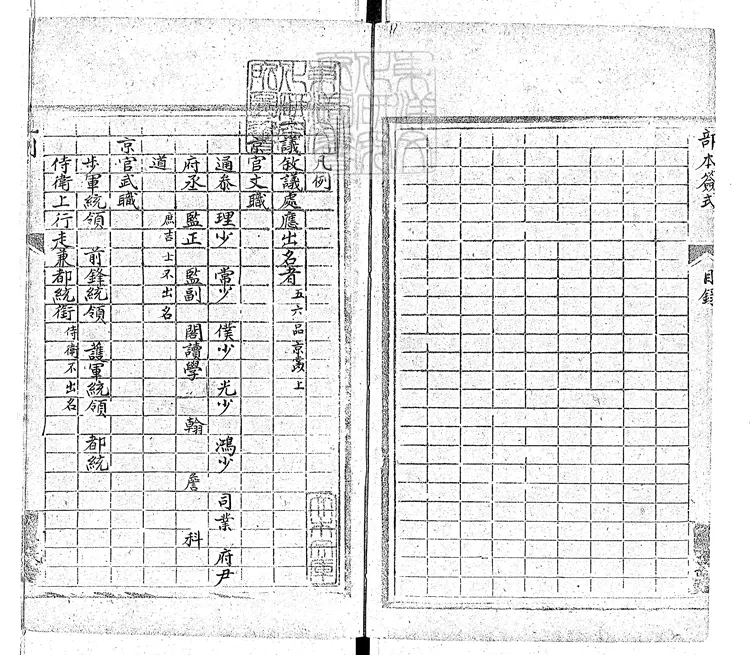 部本簽式
目錄
凡例
議敘議處應出名者 五六品京堂以上
京官文職
通參 理少 常少 僕少 光少 鴻少 司業 府尹
府丞 監正 監副 閣讀學 翰 詹 科
道 庶吉士不出名
京官武職
步軍統領 前鋒統領 護軍統領 都統
侍衛上行走兼都統銜 侍衛不出名